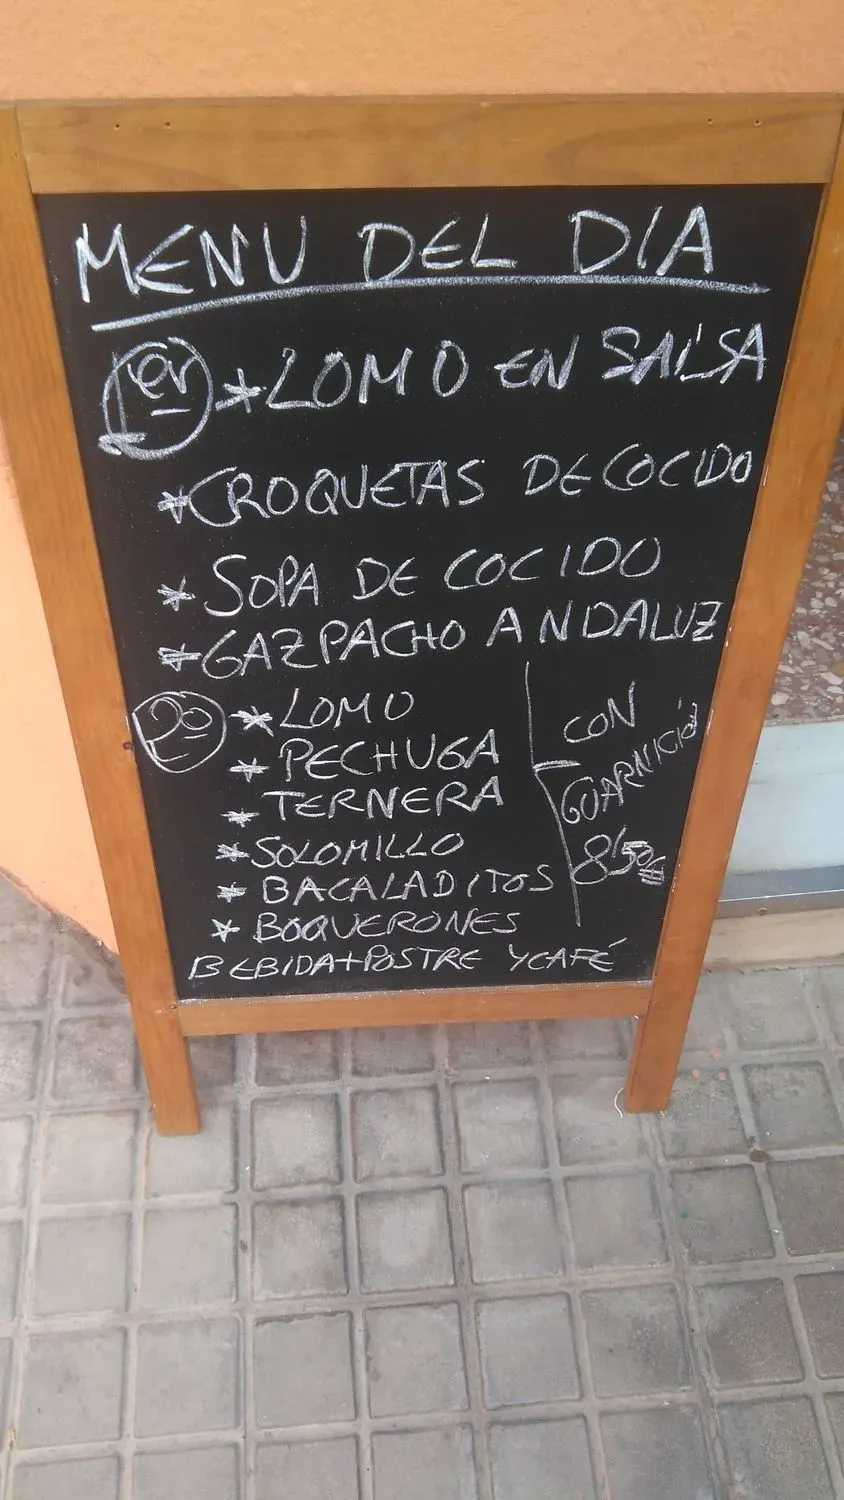 MENU DEL DIA
1er * LOMO EN SALSA
* CROQUETAS DE COCIDO
* SOPA DE COCIDO
* GAZPACHO ANDALUZ
2º * LOMO
* PECHUGA
* TERNERA
* SOLOMILLO
* BACALADITOS
* BOQUERONES
CON
GUARNICIÓN
8'50€
BEBIDA+POSTRE Y CAFÉ